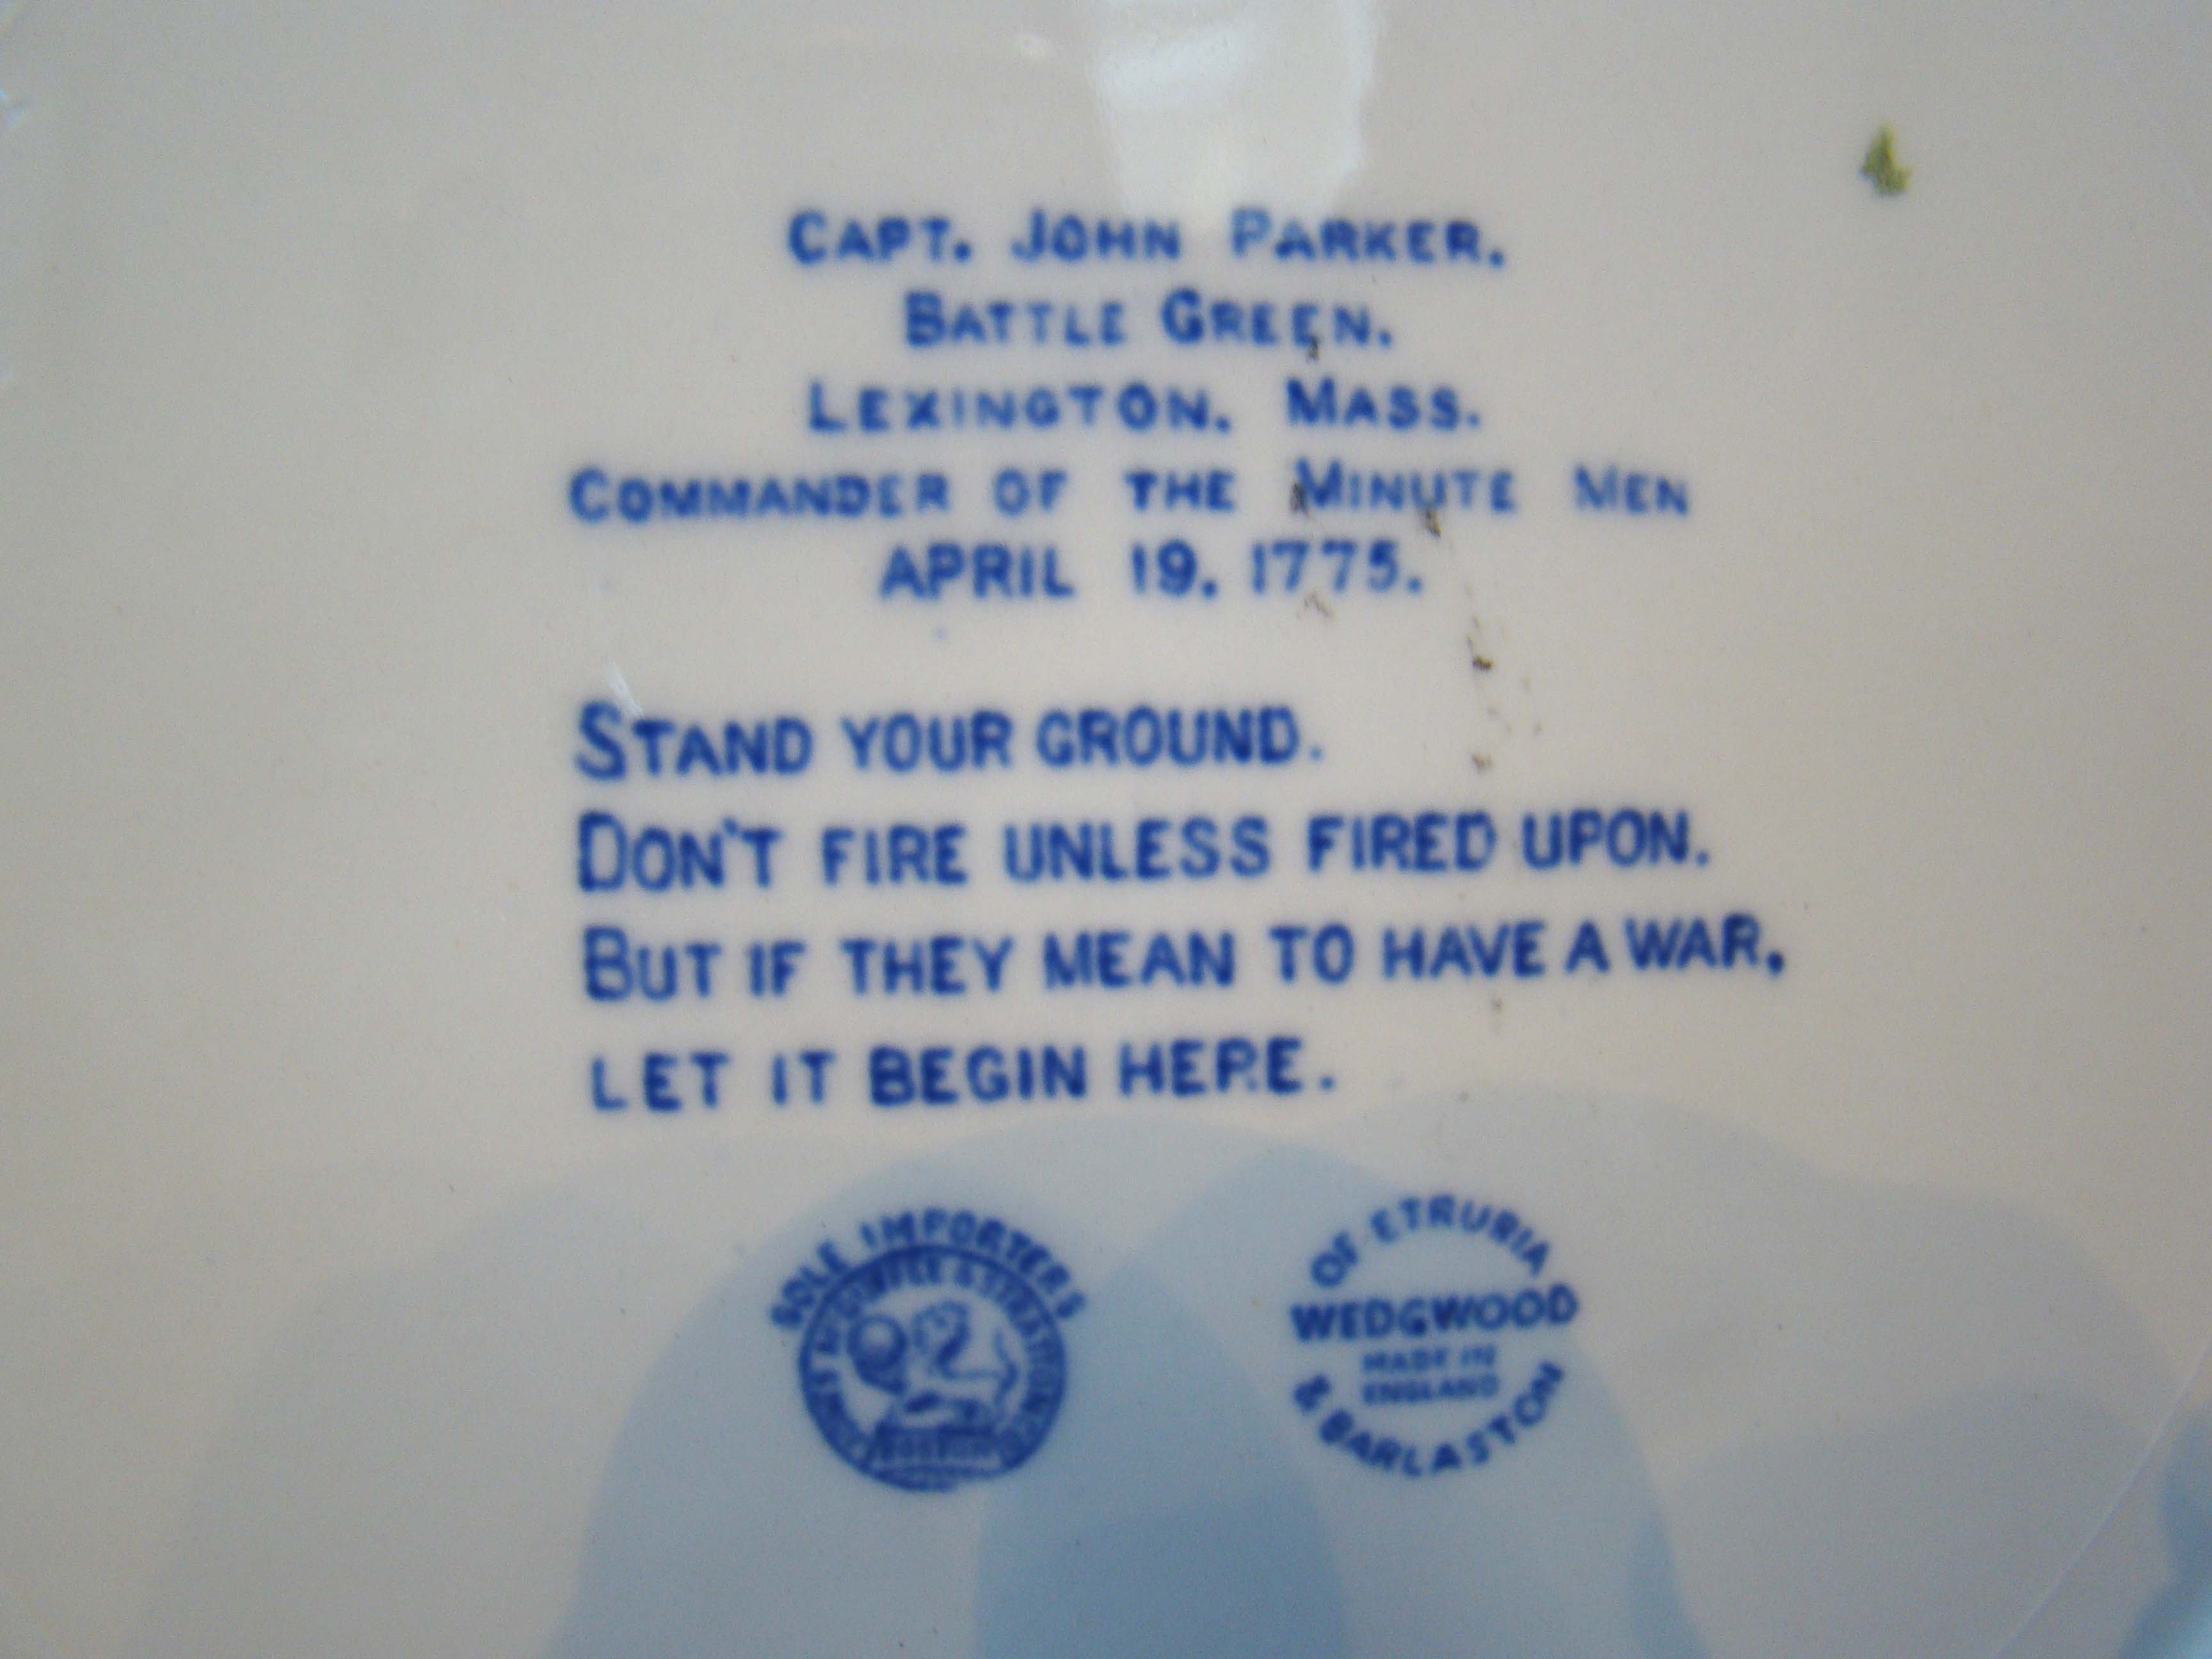 CAPT. JOHN PARKER.
BATTLE GREEN.
LEXINGTON. MASS.
COMMANDER OF THE MINUTE MEN
APRIL 19. 1775.
STAND YOUR GROUND.
DON'T FIRE UNLESS FIRED UPON.
BUT IF THEY MEAN TO HAVE A WAR,
LET IT BEGIN HERE.
SOLE IMPORTERS
JONES, MCDUFFEE & STRATTON CO.
BOSTON
OF ETRURIA
WEDGWOOD
MADE IN
ENGLAND
& BARLASTON